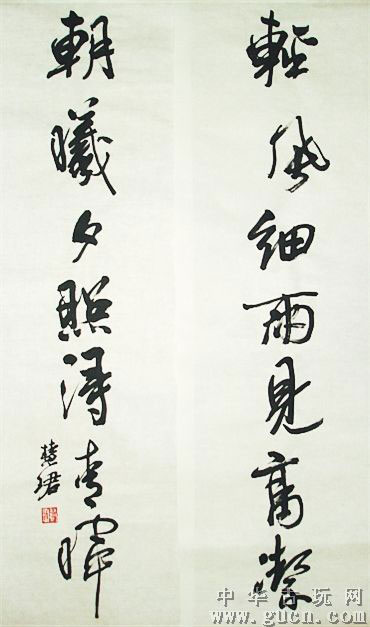 輕風細雨見高潔
朝曦夕照得青暉
中华古玩网
www.gucn.com